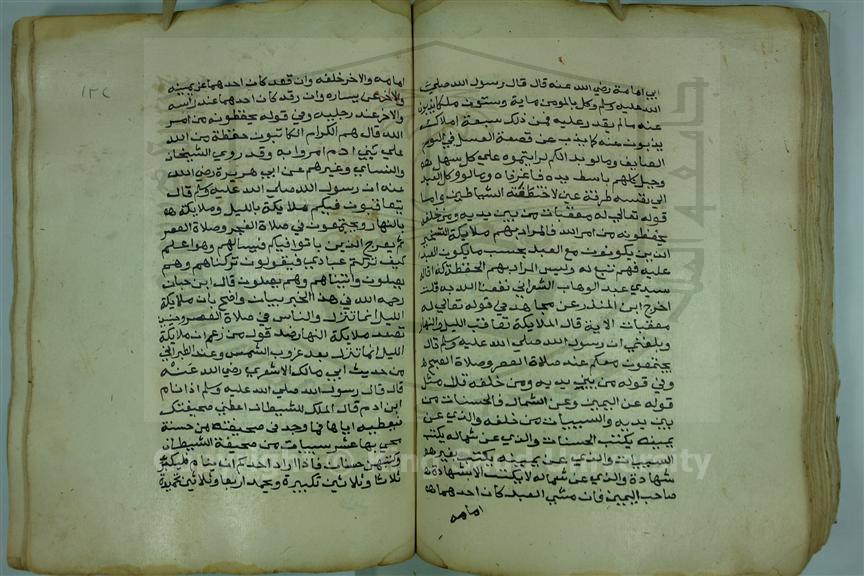 ابي امامة رضي الله عنه قال قال رسول الله صلي
الله عليه وسلم وكل بالمومن ماية وستون ملكا يذبون
عنه مالم يقدر عليه فمن ذلك سبعة املاك
يذبون عنه كما يذب عن قصعة العسل في اليوم
الصايف ومالو بدا لكم لرايتموه علي كل سهل
وجبل كلهم باسط يده فاغرفاه ومالو وكل العبد
الي نفسه طرفة عين لاختطفته الشياطين واما
قوله تعالي له معقبات من بين يديه ومن خلفه
يحفظونه من امر الله فالمراد بهم ملايكة التسخير
الذين يكونون مع العبد بحسب ما يكون العبد
عليه فهم تبع له وليس المراد بهم الحفظة كما قاله
سيدي عبد الوهاب الشعراني نفعنا الله به قلت
اخرج ابن المنذر عن مجاهد في قوله تعالي له
معقبات الاية قال الملايكة تعاقب الليل والنهار
وبلغني ان رسول الله صلي الله عليه وسلم قال
يجتمعون معكم عند صلاة العصر وصلاة الصبح
وفي قوله من بين يديه ومن خلفه قال مثل
قوله عن اليمين وعن الشمال فالحسنات من
بين يديه والسييات من خلفه والذي عن
يمينه يكتب الحسنات والذي عن شماله يكتب
السييات والذي عن يمينه يكتب بغير
شهادة والذي عن شماله لا يكتب الا بشهادة
صاحب اليمين فان مشي العبد كان احدهما
امامه
١٢٤
امامه والاخر خلفه وان قعد كان احدهما عن يمينه
والاخر عن يساره وان رقد كان احدهما عند راسه
والاخر عند رجليه وفي قوله يحفظونه من امر
الله قال هم الكرام الكاتبون حفظة من الله
علي بني ادم امروا به وقد روي الشيخان
والنساي وغيرهم عن ابي هريرة رضي الله
عنه ان رسول الله صلي الله عليه وسلم قال
يتعاقبون فيكم ملايكة بالليل وملايكة
بالنهار ويجتمعون في صلاة الفجر وصلاة العصر
ثم يعرج الذين باتوا فيكم فيسالهم وهو اعلم
كيف تركتم عبادي فيقولون تركناهم وهم
يصلون واتيناهم وهم يصلون قال ابن حبان
رحمه الله في هذا الخبر بيان واضح بان ملايكة
الليل انما تنزل والناس في صلاة العصر وحينيذ
تصعد ملايكة النهار ضد قول من زعم ان ملايكة
الليل انما تنزل بعد غروب الشمس وعند الطبراني
من حديث ابي مالك الاشعري رضي الله عنه
قال قال رسول الله صلي الله عليه وسلم اذا نام
ابن ادم قال الملك للشيطان اعطني صحيفتك
فيعطيه اياها فما وجد في صحيفته من حسنة
محي بها عشر سييات من صحيفة الشيطان
وكتبهن حسنات فاذا اراد احدكم ان ينام فليكبر
ثلاثا وثلاثين تكبيرة ويحمد اربعا وثلاثين تحميدة
Copyright © King Saud University